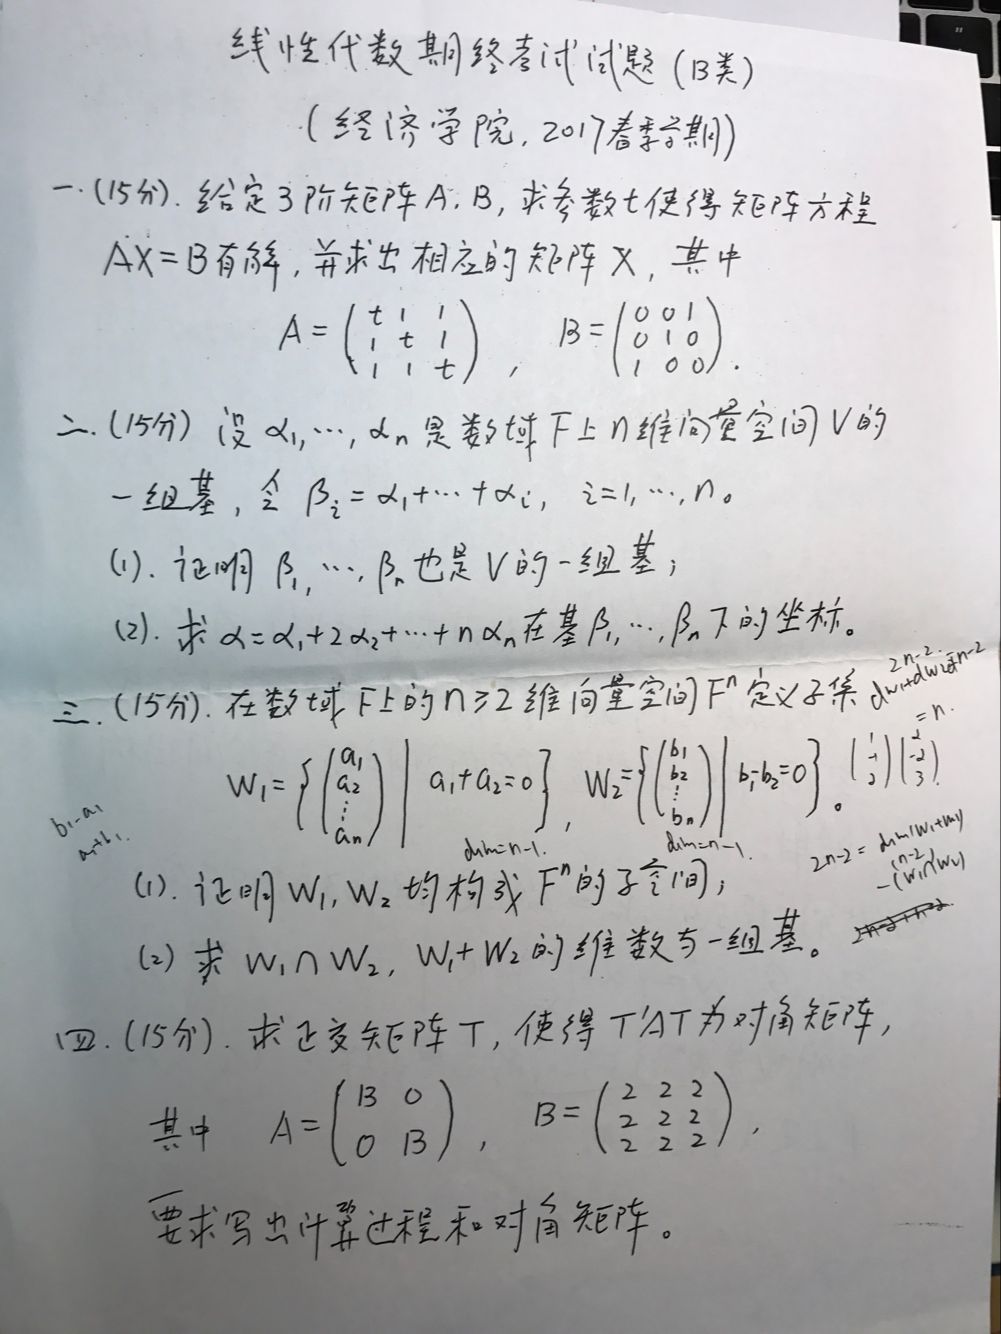 线性代数期终考试试题(B类)
(经济学院,2017春季学期)
一.(15分).给定3阶矩阵A.B,求参数t使得矩阵方程
AX=B有解,并求出相应的矩阵X,其中
A=(t 1 1
1 t 1
1 1 t), B=(0 0 1
0 1 0
1 0 0).
二.(15分) 设α₁,…,αₙ是数域F上n维向量空间V的
一组基,令βᵢ=α₁+…+αᵢ, i=1,…,n。
(1).证明β₁,…,βₙ也是V的一组基;
(2).求α=α₁+2α₂+…+nαₙ在基β₁,…,βₙ下的坐标。
2n-2.
三.(15分).在数域F上的n≥2维向量空间Fⁿ定义子集
=n.
W₁={(a₁
a₂
⋮
aₙ) | a₁+a₂=0}, W₂={(b₁
b₂
⋮
bₙ) | b₁-b₂=0}。
(1
-1
2) (2
-2
3)
b₁-a₁
a₁+b₁.
dim=n-1. dim=n-1.
2n-2= dim(W₁+W₂)
(n-2)
-(W₁∩W₂)
(1).证明W₁,W₂均构成Fⁿ的子空间;
(2)求W₁∩W₂,W₁+W₂的维数与一组基。
四.(15分).求正交矩阵T,使得T'AT为对角矩阵,
其中 A=(B 0
0 B), B=(2 2 2
2 2 2
2 2 2),
要求写出计算过程和对角矩阵。